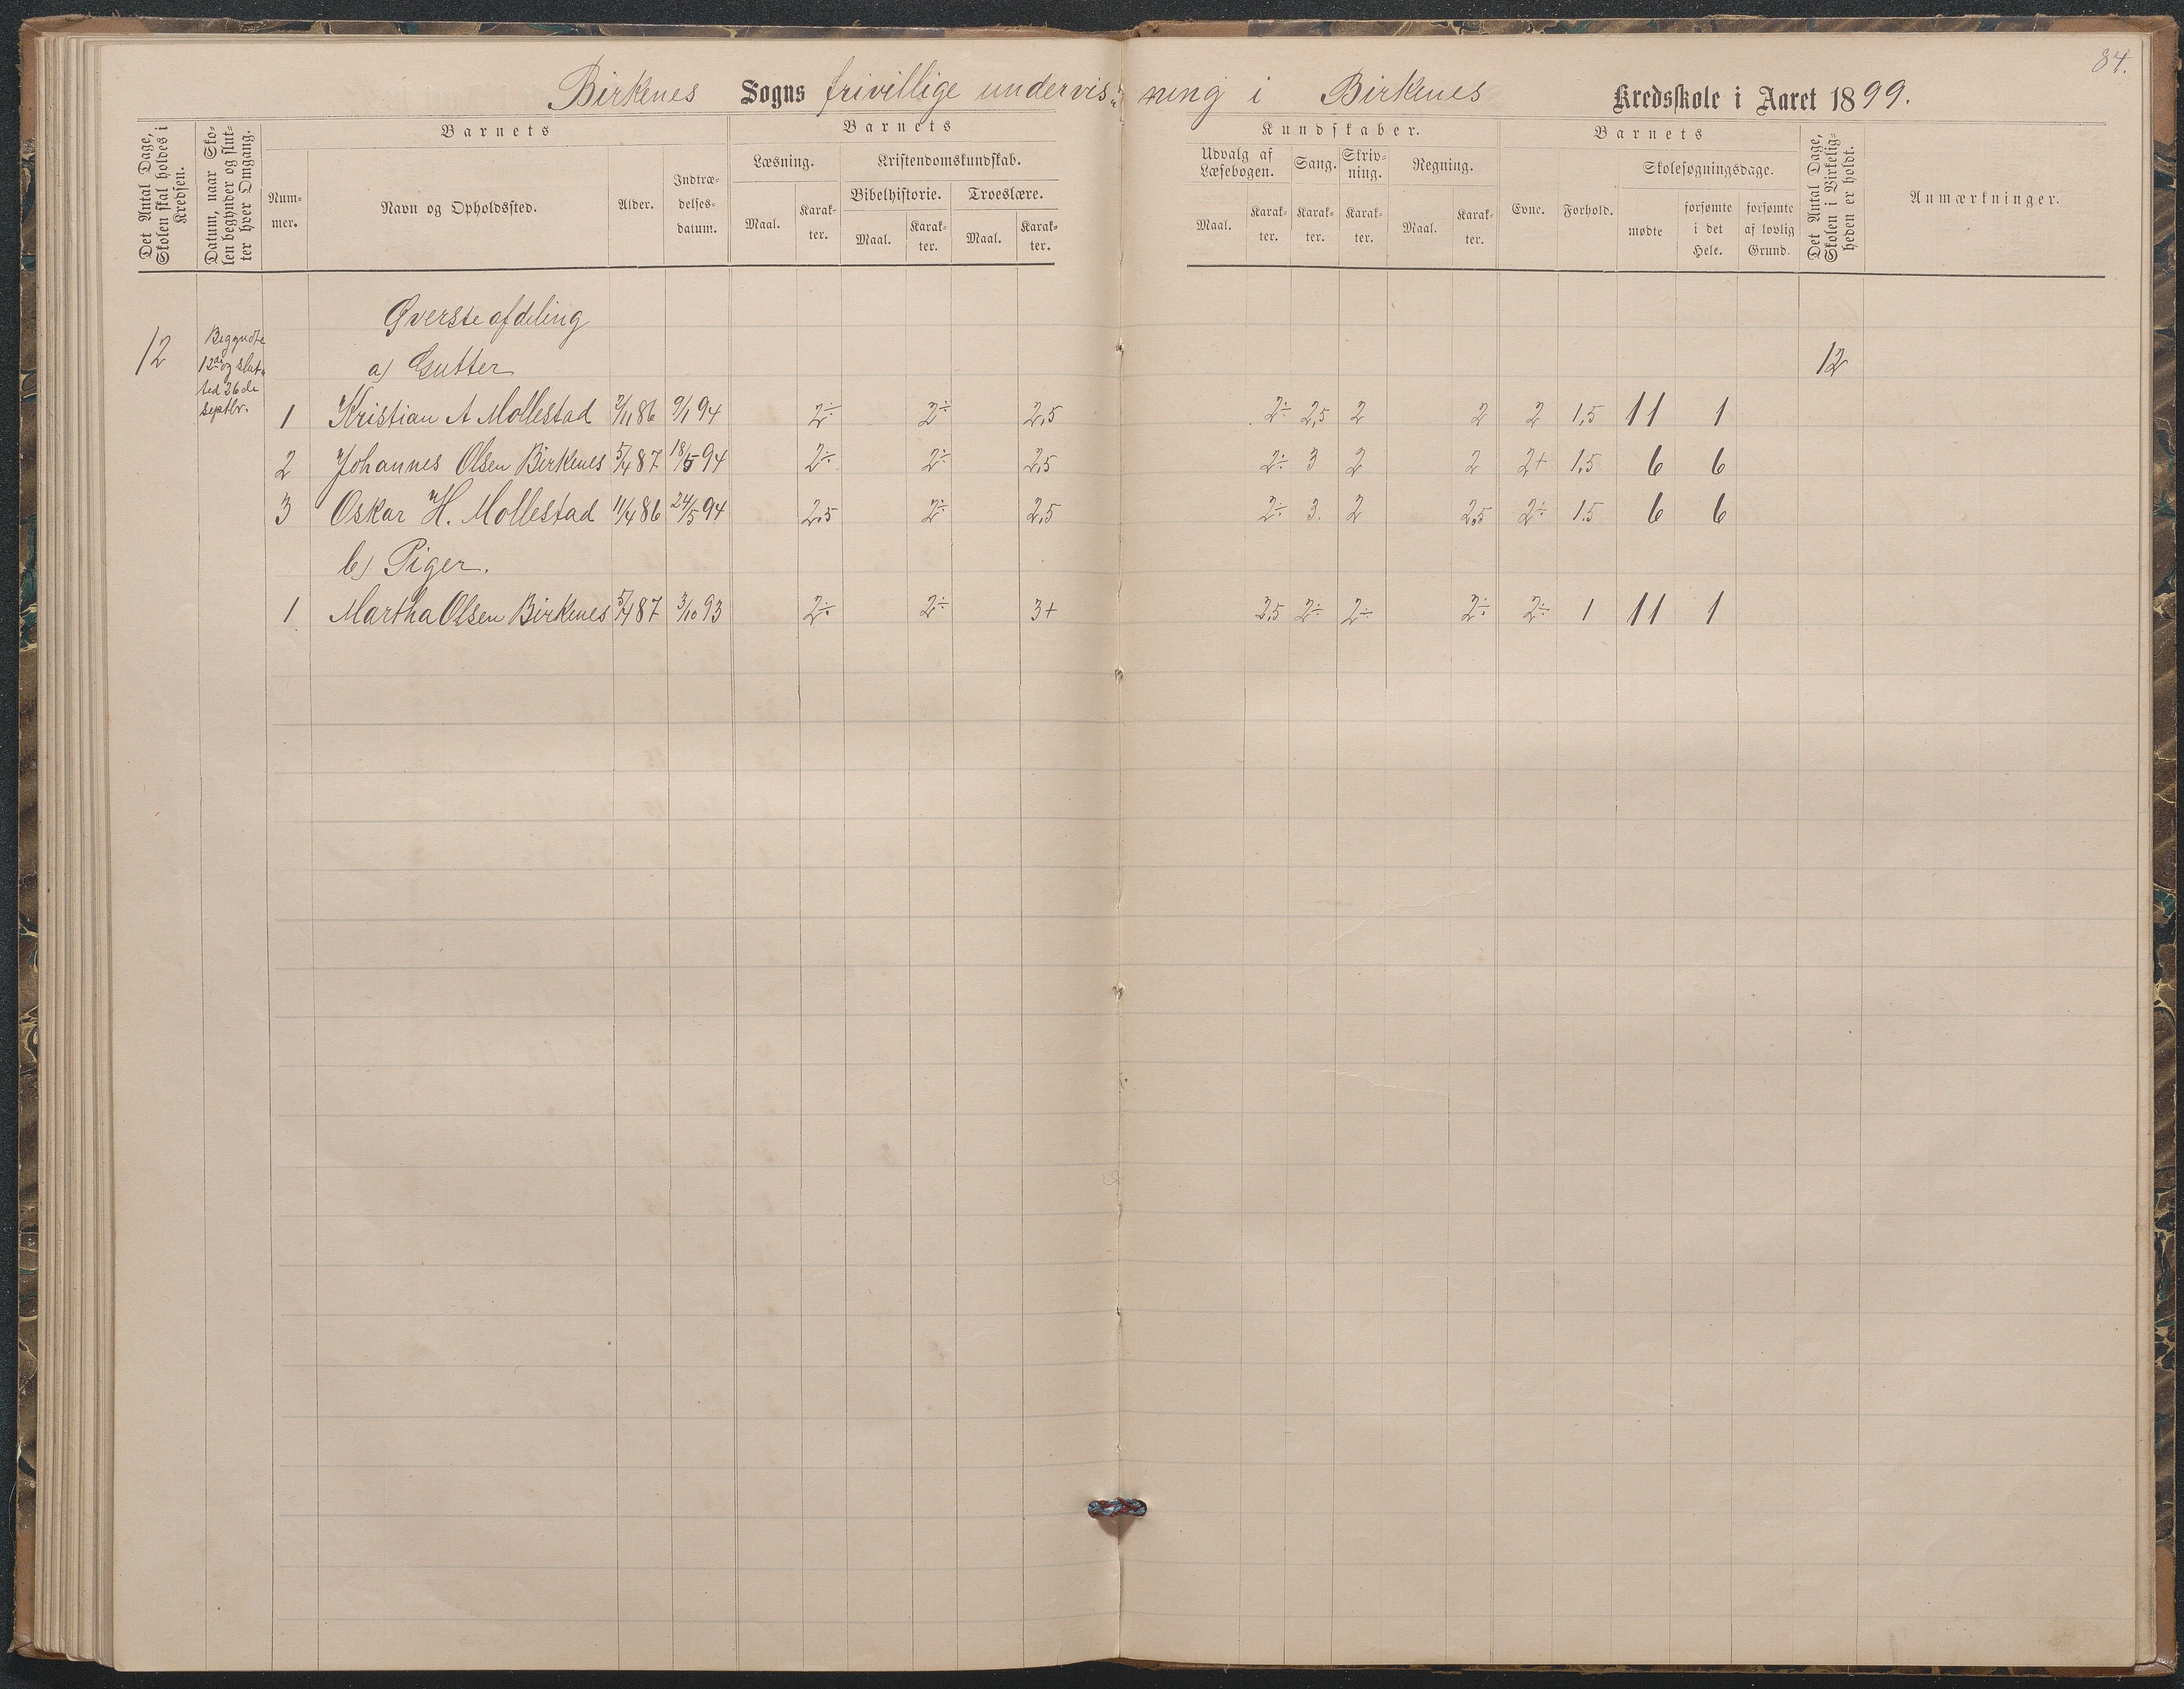 84.
Birkenes Sogns frivillige undervis- ning i Birkenes Kredsskole i Aaret 1899.
Det Antal Dage, Skolen skal holdes i Kredsen.
Datum, naar Skolen begynder og slutter hver Omgang.
Barnets
Nummer.
Navn og Opholdssted.
Alder.
Indtrædelsesdatum.
Barnets
Læsning.
Maal.
Karakter.
Kristendomskundskab.
Bibelhistorie.
Maal.
Karakter.
Troeslære.
Maal.
Karakter.
Kundskaber.
Udvalg af Læsebogen.
Maal.
Karakter.
Sang.
Karakter.
Skrivning.
Karakter.
Regning.
Maal.
Karakter.
Barnets
Evne.
Forhold.
Skolesøgningsdage.
mødte
forsømte i det Hele.
forsømte af lovlig Grund.
Det Antal Dage, Skolen i Virkeligheden er holdt.
Anmærkninger.
Øverste afdeling
12 Begyndte 12de og slut- ted 26de Septbr.
a) Gutter 12
1 Kristian A Mollestad 2/11 86 9/1 94 2÷ 2÷ 2,5 2÷ 2,5 2 2 2 1,5 11 1
2 Johannes Olsen Birkenes 5/4 87 18/5 94 2÷ 2÷ 2,5 2÷ 3 2 2 2+ 1,5 6 6
3 Oskar H. Mollestad 11/4 86 24/5 94 2,5 2÷ 2,5 2÷ 3. 2 2,5 2÷ 1.5 6 6
b) Piger.
1 Martha Olsen Birkenes 5/4 87 3/10 93 2÷ 2÷ 3+ 2,5 2÷ 2÷ 2÷ 2÷ 1 11 1